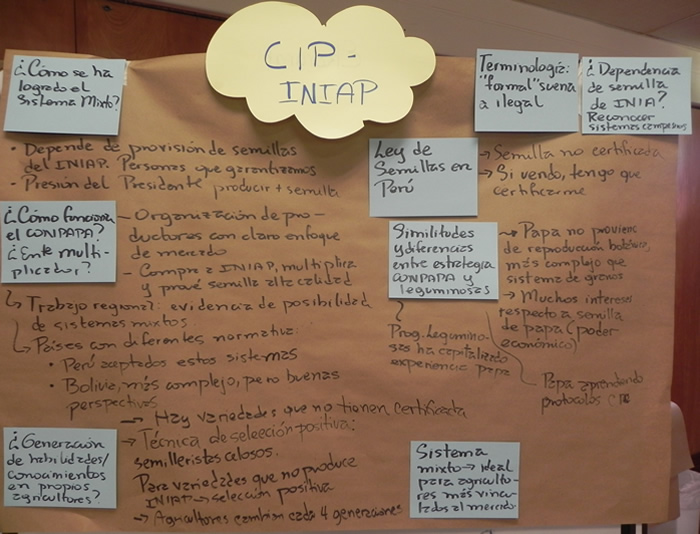 CIP-
INIAP
¿Cómo se ha
logrado el
Sistema Mixto?
• Depende de provisión de semillas
del INIAP. Personas que garantizamos
• Presión del Presidente producir + semilla
¿Cómo funciona
el CONPAPA?
¿Ente multi-
plicador?
- Organización de pro-
ductores con claro enfoque
de mercado
- Compra INIAP, multiplica
y prové semilla alta calidad
↳ Trabajo regional: evidencia de posibilidad
de sistemas mixtos.
↳ Países con diferentes normativa:
• Perú aceptados estos sistemas
• Bolivia, más complejo, pero buenas
perspectivas
→ Hay variedades que no tienen certificada
¿Generación
de habilidades/
conocimientos
en propios
agricultores?
→ Técnica de selección positiva:
semilleristas celosos.
Para variedades que no produce
INIAP → selección positiva
→ Agricultores cambian cada 4 generaciones
Terminología:
"formal" suena
a ilegal
¿Dependencia
de semilla
de INIA?
Reconocer
sistemas campesinos
Ley de
Semillas en
Perú
→ Semilla no certificada
→ Si vendo, tengo que
certificarme
Similitudes
y diferencias
entre estrategia
CONPAPA y
leguminosas
→ Papa no proviene
de reproducción botánica,
más complejo que
sistema de granos
→ Muchos intereses
respecto a semilla
de papa (poder
económico)
Prog. Legumino-
sas ha capitalizado
experiencia papa
Papa aprendiendo
protocolos
Sistema
mixto → ideal
para agriculto-
res más vincu-
lados al mercado